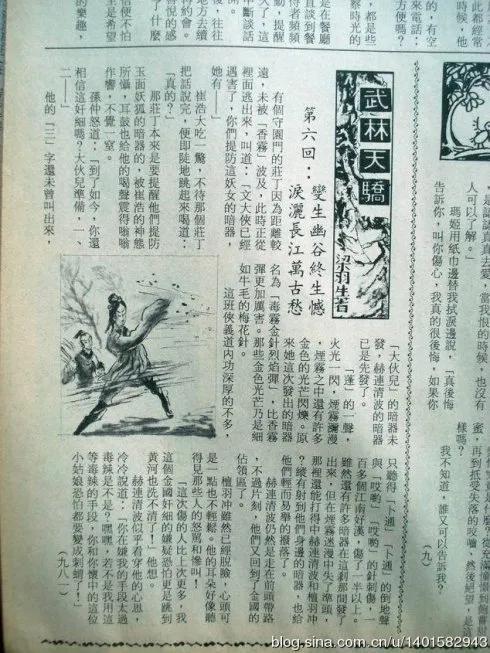 此都經常
時候，他
的，有空
來電話：
方便嗎？
察時光的
，都是些
是誠誠真真
人可以了解。」
瑪姬用紙巾邊替我拭淚邊說，「真後悔
告訴你，叫你傷心，我真的很後悔，如果你
樣嗎？
我不知道，誰又可以告訴我？
（九）
武林天驕
梁羽生著
第六回：
孿生幽谷終生憾
淚灑長江萬古愁
有個守園門的莊丁因為距離較
遠，未被「香霧」波及，此時正從
裡面逃出來，叫道：「文大俠已經
遇害了，你們提防這妖女的暗器，
她有——」
崔浩大吃一驚，不待那個莊丁
把話說完，便即陡地跳起來喝道：
「真的？」
那莊丁本來是要提醒他們提防
玉面妖狐的暗器的，被崔浩的神態
所懾，耳鼓也給他的喝聲震得嗡嗡
作響，不覺一窒。
孫仲怒道：「到了如今，你還
相信這奸細嗎？大伙兒準備，一、
二——」
他的「三」字還未曾叫出來，
「大伙兒」的暗器未
發，赫連清波的暗器
已是先發了。
「蓬」的一聲，
火光一閃，煙霧瀰漫
，煙霧之中還有許多
金色的光芒閃爍。原
來她這次發出的暗器
名為「毒霧金針烈焰彈」，比香霧
彈更加厲害。那些金色光芒乃是細
如牛毛的梅花針。
這班俠義道內功深厚的不多，
只聽得「卜通」「卜通」的倒地聲
與「哎喲」「哎喲」的針刺傷，一
百多個江南好漢，傷了一半以上。
雖然還有許多暗器在這剎那間發了
出來，但在煙霧迷漫中失了準頭，
那裡還能打得中赫連清波和檀羽冲
？縱有射到他們身邊的暗器，也給
他們輕而易舉的撥落了。
赫連清波仍然是走在前頭帶路
，不過片刻，他們又回到了金國的
佔領區了。
檀羽冲雖然已經脫險，心頭可
是一點也不輕鬆。他的耳朵好像聽
得見那些人的怒罵和慘叫。
「這次傷的人比上次更多，我
這個金國奸細的嫌疑恐怕更是跳到
黃河也洗不清了！」他想。
赫連清波似乎看穿他的心思，
冷冷說道：「你在嫌我的手段太過
毒辣是不是？嘿嘿，若不是我用這
等毒辣的手段，你和你懷中的這位
小姑娘恐怕都要變成刺蝟了！」
（九八一）
blog.sina.com.cn/u/1401582943